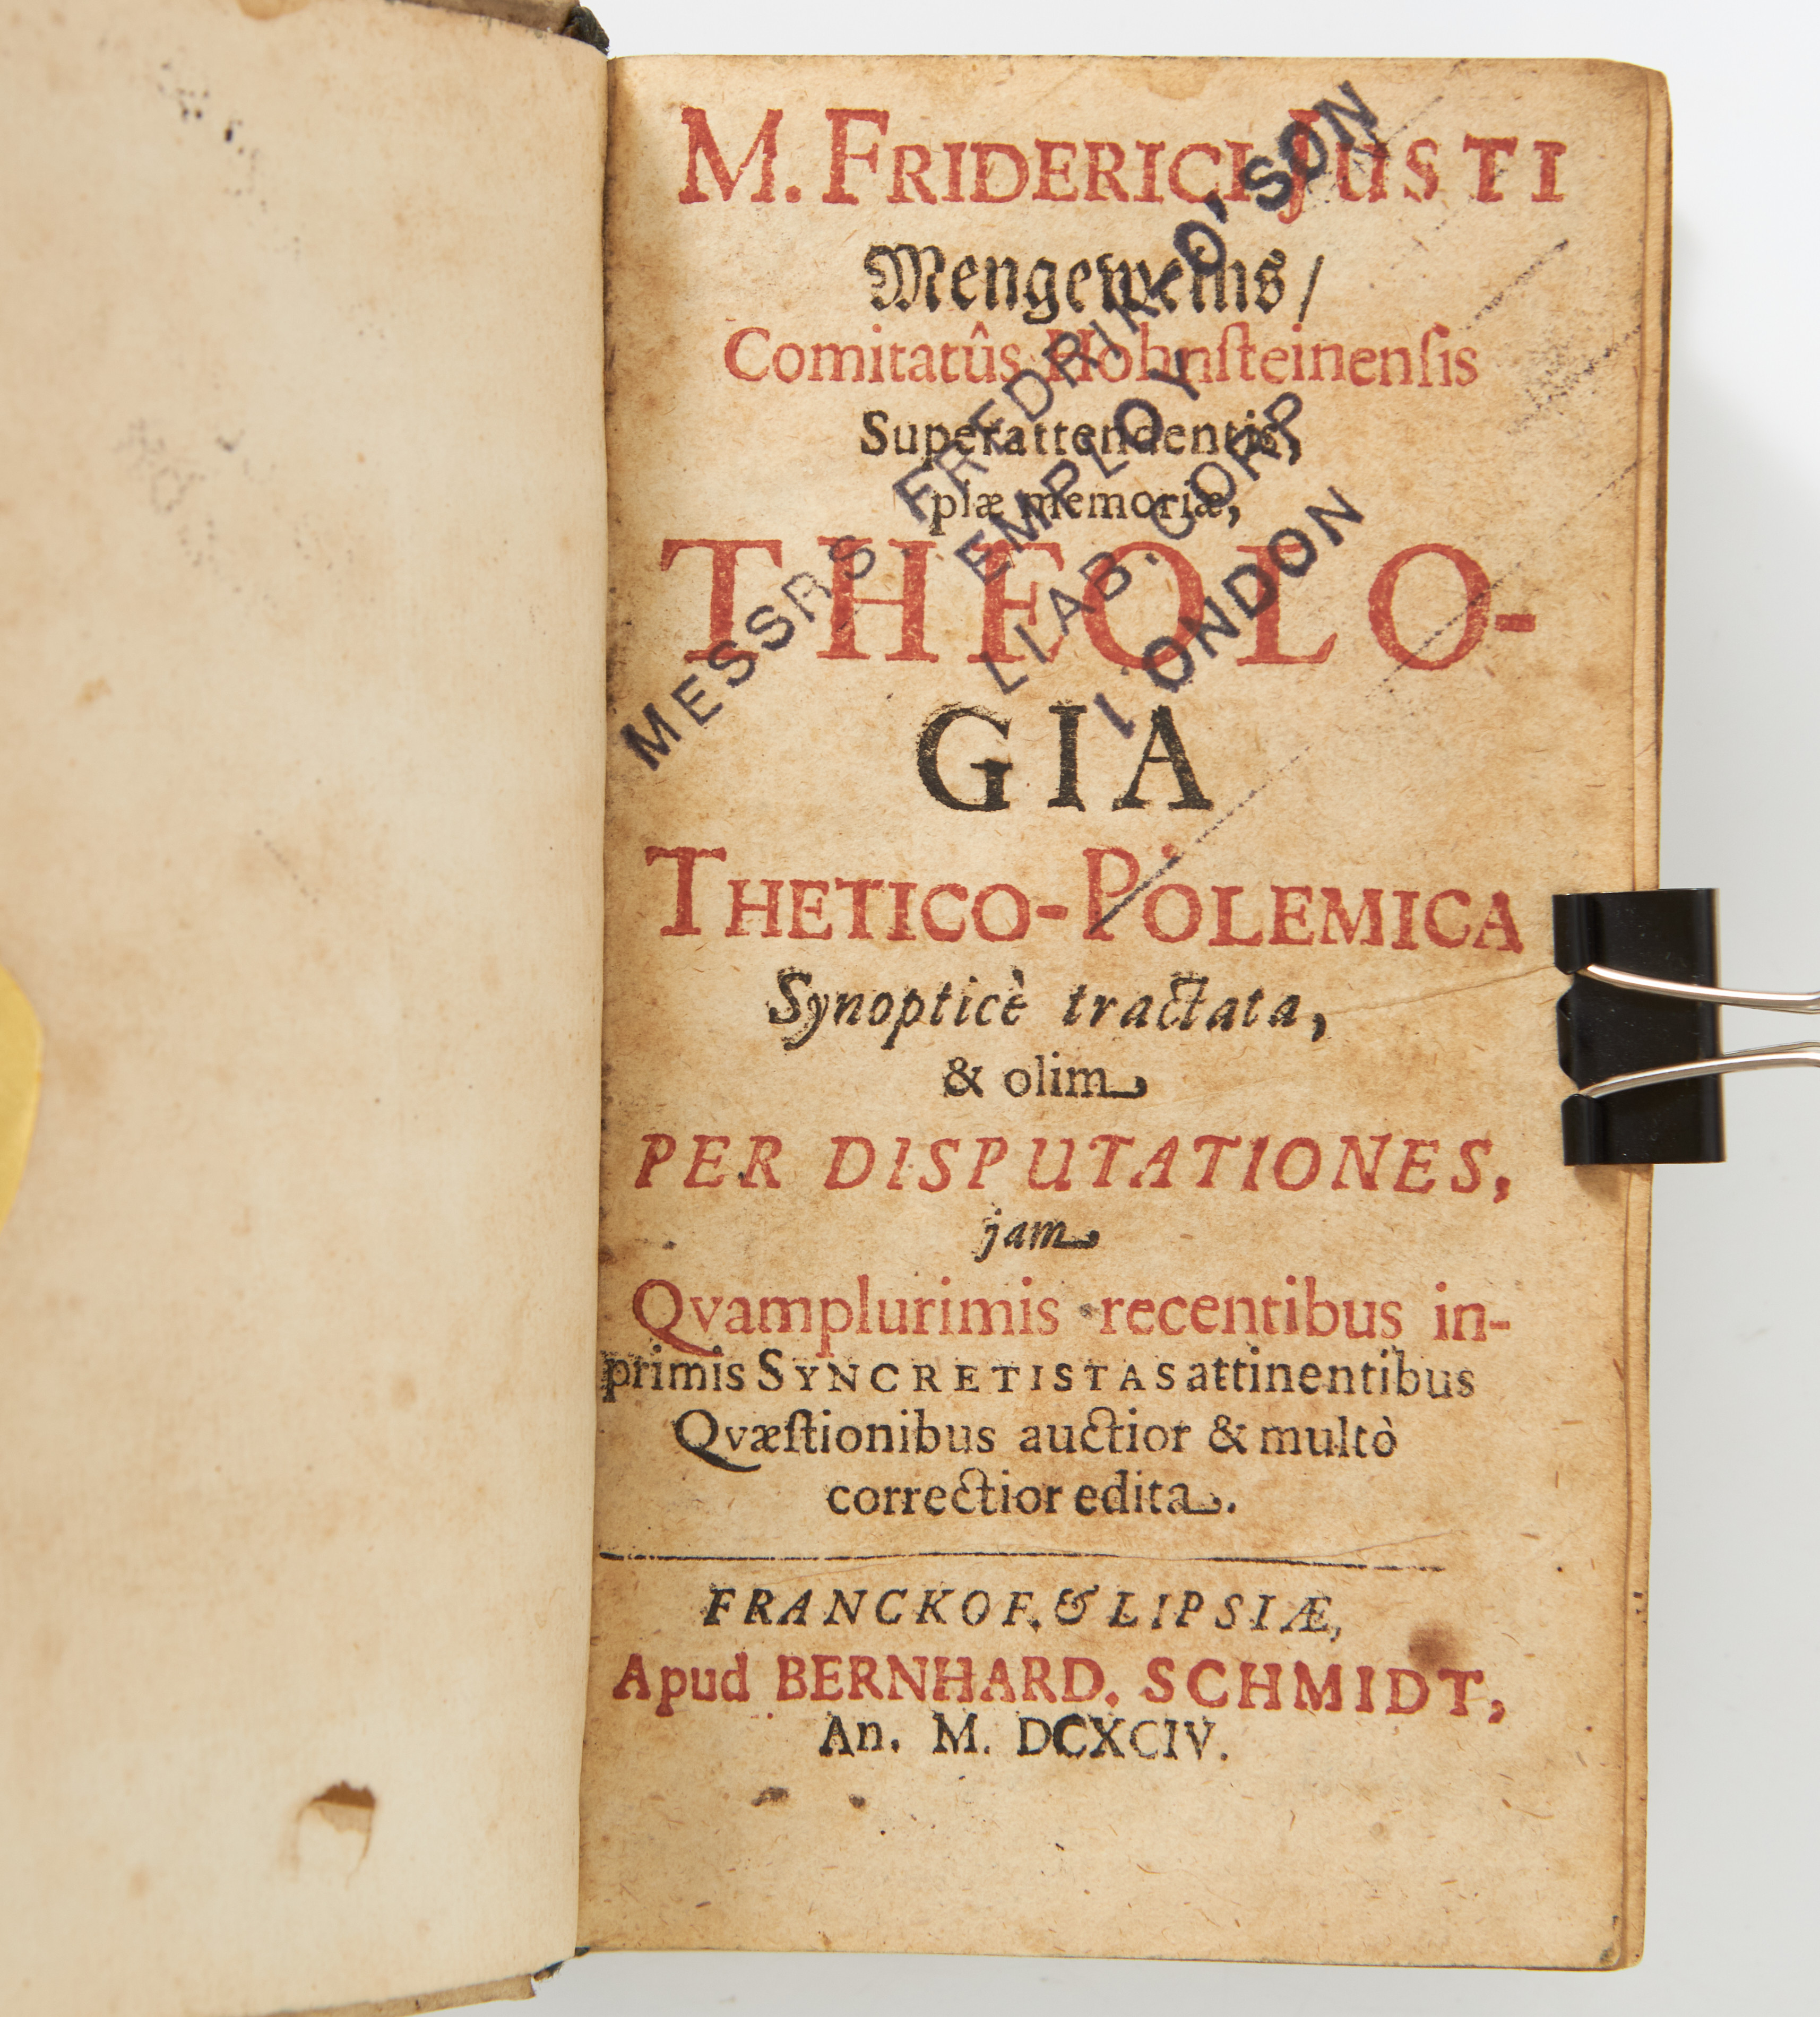 M. FRIDERICI JUSTI
Mengeweins/
Comitatûs Hohnſteinenſis
Superattendentis,
piæ memoriæ,
THEOLO-
GIA
THETICO-POLEMICA
Synopticè tractata,
& olim
PER DISPUTATIONES,
jam
Qvamplurimis recentibus in-
primis SYNCRETISTAS attinentibus
Qvæſtionibus auctior & multò
correctior edita.
FRANCKOF. & LIPSIÆ,
Apud BERNHARD. SCHMIDT,
An. M. DCXCIV.
MESSRS FREDRIK D'SON
EMPLOY
LIAB. CORP
LONDON